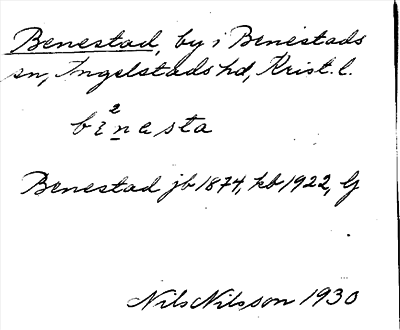 Benestad, by i Benestads
sn, Ingelstads hd, Krist. l.
2
benasta
Benestad jb 1874, kb 1922, lj
Nils Nilsson 1930